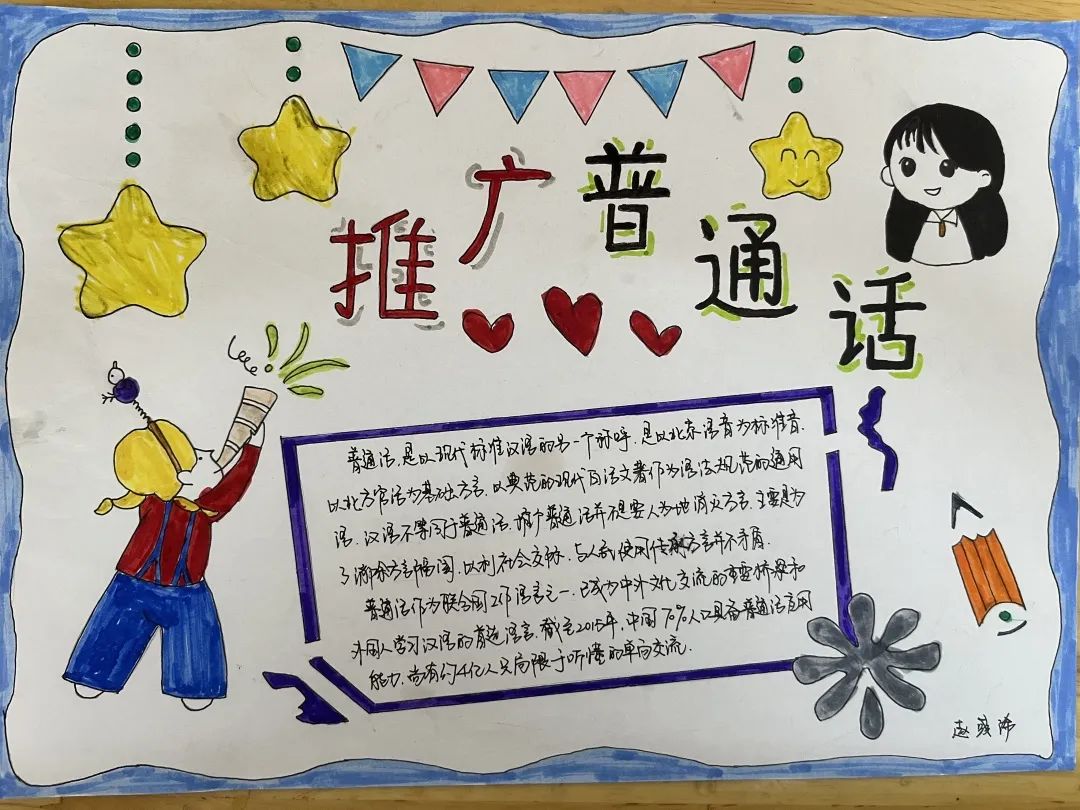 推广普通话
普通话，是以现代标准汉语的另一个称呼，是以北京语音为标准音.
以北方官话为基础方言，以典范的现代白话文著作为语法规范的通用
语．汉语不等同于普通话，推广普通话并不是要人为地消灭方言，主要是为
了消除方言隔阂，以利社会交际，与人民使用传承方言并不矛盾．
普通话作为联合国工作语言之一．已成为中外文化交流的重要桥梁和
外国人学习汉语的首选语言，截至2015年，中国70%人口具备普通话应用
能力，尚有约4亿人只局限于听懂的单向交流．
赵